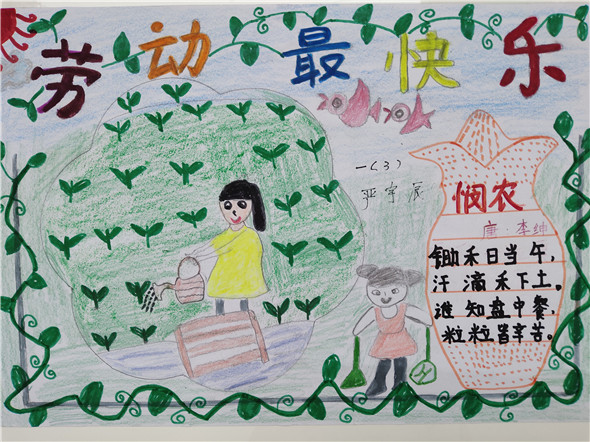 劳动最快乐
一(3)
悯农
唐·李绅
锄禾日当午,
汗滴禾下土。
谁知盘中餐,
粒粒皆辛苦。